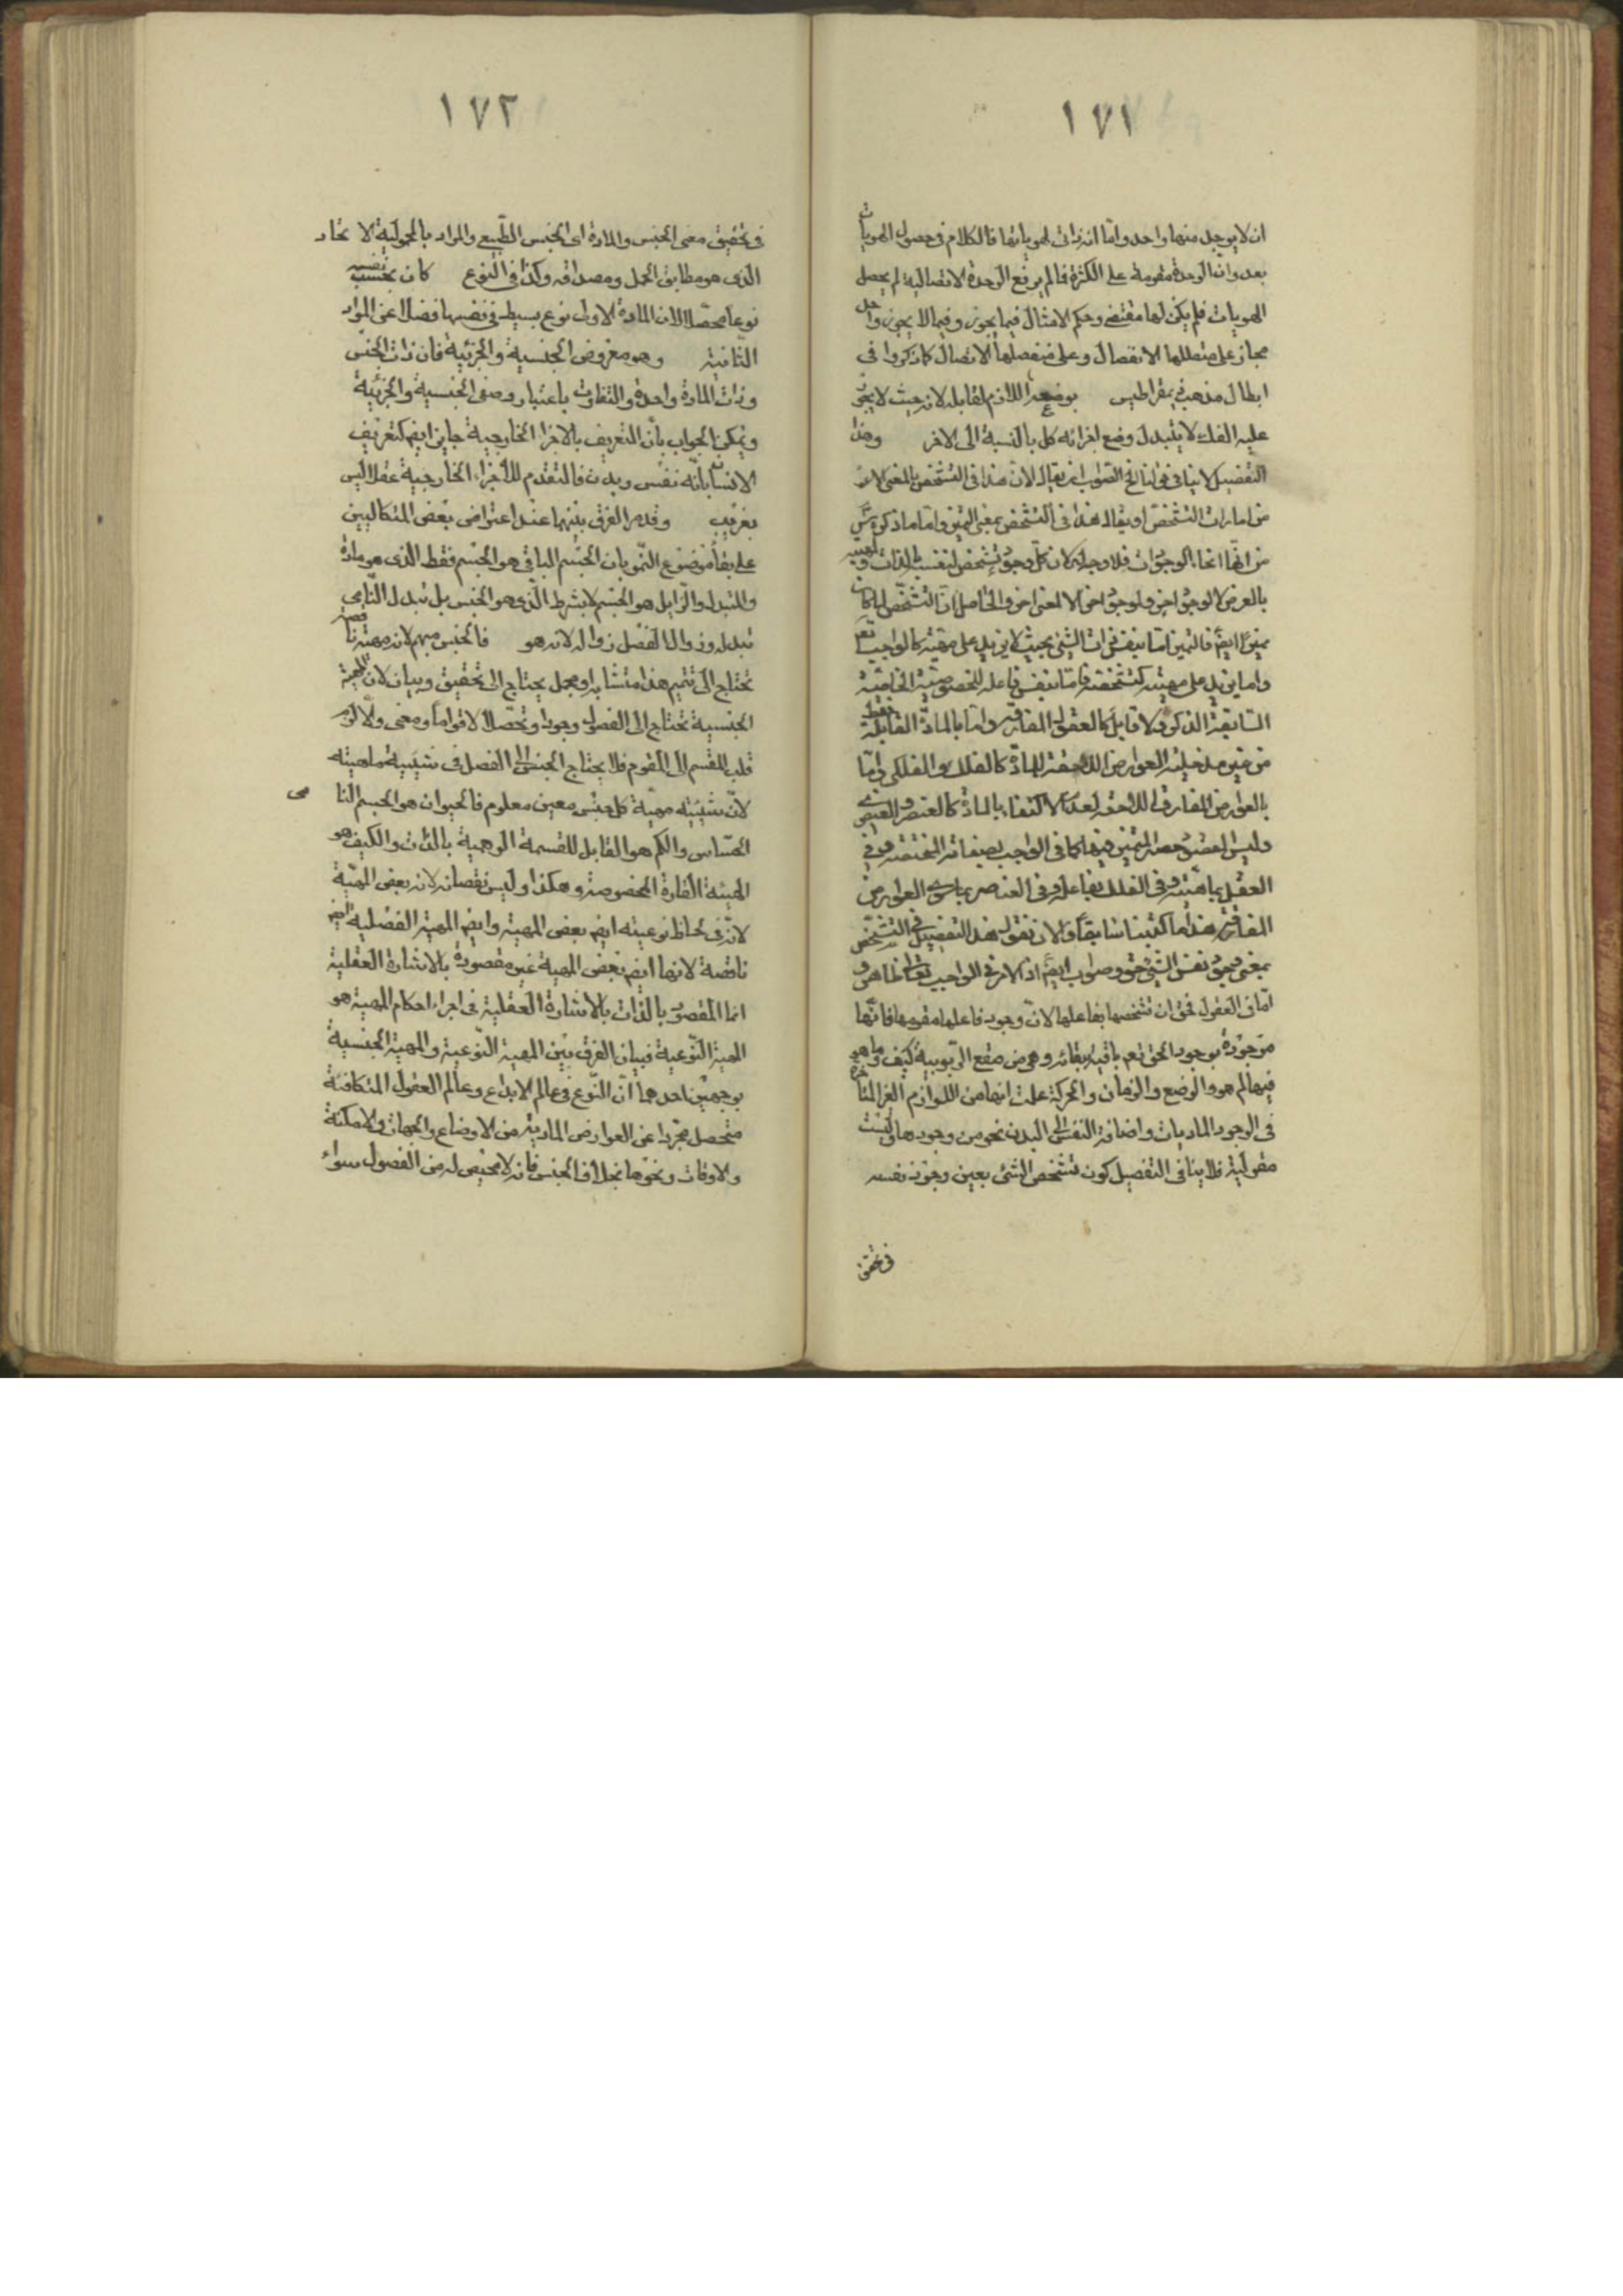 ١٧١
ان لا يوجد منها واحد واما انه ذاتى لهوياتها فالكلام فى حصول الهويات
بعد وان الوحدة مقومة على الكثرة فما لم يرفع الوحدة الاتصالية لم يحصل
الهويات فلم يكن لها مقتضى وحكم الامثال فيما يجوز وفيما لا يجوز واحد
مجاز على متصلها الانفصال وعلى منفصلها الاتصال كما ذكروا فى
ابطال مذهب ذيمقراطيس بوضعه اللازم لقابله لانه حيث لا يجوز
عليه الفك لا يتبدل وضع اجزائه كل بالنسبة الى الاخر وهذا
التفصيل لا ينافى قولنا الصواب ان يقال لان هذا فى التشخص بالمعنى الاعم
من امارات التشخص او يقال هذا فى التشخص بمعنى التميز واما ما ذكره
من انها انحاء الوجودات فلا وجه له كان كل وجود تشخص لنفسه بالذات ولمهيته
بالعرض لا لوجود اخر ولوجود اخر لا لمعنى اخر والحاصل ان التشخص لما كان
مميزا ايضا فالتميز اما بنفس ذات الشئ بحيث لا يزيد على مهيته كالواجب تعم
واما يزيد على مهيته كتشخصه فاما بنفس فاعله الخصوصية الخاصية
السابقة الذكر ولا قابل كالعقول المفارقة واما بالمادة القابلة فقط
من غير مدخلية العوارض اللاحقة للمادة كالفلك والفلكى واما
بالعوارض المفارقة اللاحقة لعدم الاكتفاء بالمادة كالعنصر والعنصرى
وليس لعضو حصة التميز فيها كما فى الواجب بصفاته المختصة وفى
العقل بماهيته وفى الفلك بفاعله وفى العناصر بماسوى العوارض
المفارقة هذا ما كتبنا سابقا والان نقول هذا التفصيل فى التشخص
بمعنى وجود نفس الشئ حق وصواب ايضا اذ الامر فى الواجب تعالى ظاهر و
اما فى العقول فحق ان تشخصها بفاعلها لان وجود فاعلها مقومها فانها
موجودة بوجود الحق تعم باقية ببقائه وهى من صقع الربوبية كيف وما هو
فيها لم هو والوضع والزمان والحركة علمت انها من اللوازم الغير المتاخرة
فى الوجود الماديات واضافة النفس الى البدن نحو من وجودها وليست
مقولية فلا ينافى التفصيل كون تشخص الشئ بعين وجود نفسه
فى تحقيق
١٧٢
فى تحقيق معنى الجنس والمادة اى الجنس الطبيعى والمراد بالمحمولية الاتحاد
الذى هو مطابق الحمل ومصداقه وكذا فى النوع كان بحسب نفسه
نوعا محصلا لان المادة الاولى نوع بسيط فى نفسها فضلا عن المواد
الثانية وهو معروض الجنسية والجزئية فان ذات الجنس
وذات المادة واحدة والتفاوت باعتبار وصفى الجنسية والجزئية
ويمكن الجواب بان التعريف بالاجزاء الخارجية جايز ايضا كتعريف
الانسان بانه نفس وبدن فالتقدم للاجزاء الخارجية عقلا ليس
بغريب وقد مر الفرق بينهما عند اعتراض بعض المتكالبين
على بقاء موضوع النمو بان الجسم الباقى هو الجسم فقط الذى هو مادة
والمتبدل والزايل هو الجسم لا بشرط الذى هو الجنس بل تبدل النامى
تبدله وزوال الفصل زواله لانه هو فالجنس مبهم لانه مهية ناقصة
تحتاج الى تتميم هذا متشابه ومجمل يحتاج الى تحقيق وبيان لان المهية
الجنسية تحتاج الى الفصول وجودا وتحصلا لا قواما ومعنى والا لزم
قلب المقسم الى المقوم فلا يحتاج الجنس الى الفصل فى شيئية ماهيته
لان شيئية مهية كل جنس معين معلوم فالحيوان هو الجسم النامى
الحساس والكم هو القابل للقسمة الوهمية بالذات والكيف هو
الهيئة القارة المخصوصة وهكذا وليس نقصانه لانه بعض المهية
لانه فى لحاظ نوعيته ايضا بعض المهية وايضا المهية الفصلية ايضا
ناقصة لانها ايضا بعض المهية غير مقصودة بالاشارة العقلية
انما المقصود بالذات بالاشارة العقلية فى اجراء احكام المهية هو
المهية النوعية فبيان الفرق بين المهية النوعية والمهية الجنسية
بوجهين احدهما ان النوع فى عالم الابداع وعالم العقول المتكافئة
متحصل مجردا عن العوارض المادية من الاوضاع والجهات والامكنة
والاوقات ونحوها بخلاف الجنس فانه لا محيص له من الفصول سواء